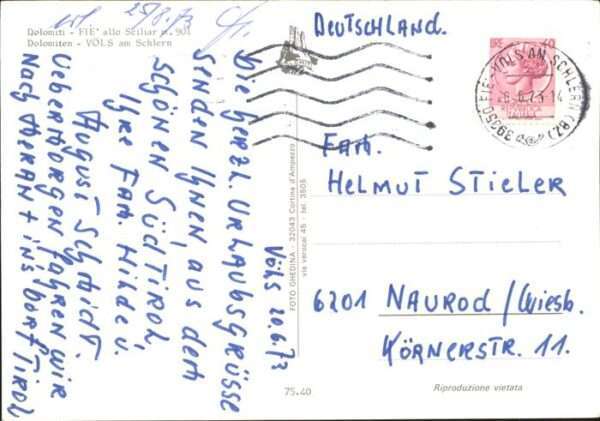 Dolomiti - FIE' allo Sciliar m. 901
Dolomiten - VÖLS am Schlern
25/8.73
Völs 20.6.73
Die herzl. Urlaubsgrüsse
senden Ihnen aus dem
schönen Südtirol,
Ihre Fam. Hilde u.
August Schmidt.
Uebermorgen fahren wir
Nach Meran + ins Dorf Tirol
FOTO GHEDINA - 32043 Cortina d'Ampezzo
via verocai 45 - tel. 3505
75.40
Deutschland.
40
39050 FIE'-VOLS AM SCHLERN (BZ)
.6.73
Fam.
Helmut Stieler
6201 Naurod/Wiesb.
Körnerstr. 11.
Riproduzione vietata